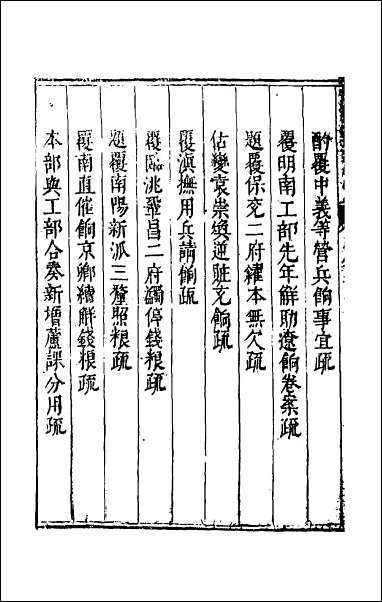 酌覆中義等營兵餉事宜疏
覆明南工部先年觧助遼餉卷案疏
題覆保兖二府糴本無欠疏
估變袁崇煥逆賍充餉疏
覆滇撫用兵請餉疏
覆臨洮鞏昌二府蠲停錢粮疏
題覆南陽新派三釐照粮疏
覆南直催餉京卿續觧錢粮疏
本部與工部合奏新增蘆課分用疏